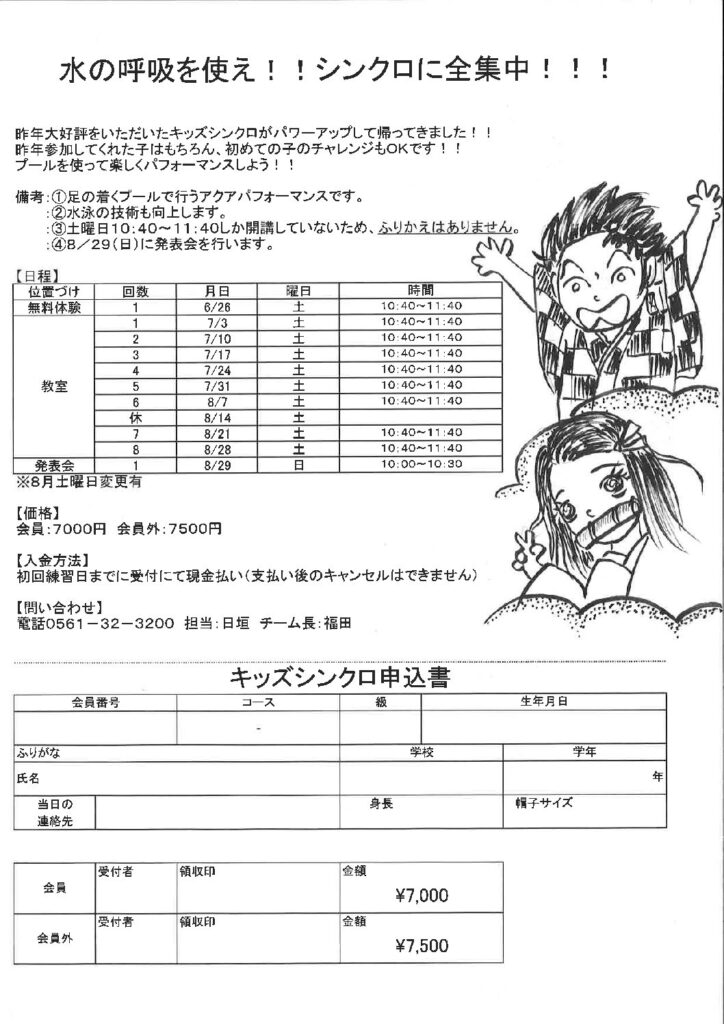 水の呼吸を使え！！シンクロに全集中！！！
昨年大好評をいただいたキッズシンクロがパワーアップして帰ってきました！！
昨年参加してくれた子はもちろん、初めての子のチャレンジもOKです！！
プールを使って楽しくパフォーマンスしよう！！
備考：①足の着くプールで行うアクアパフォーマンスです。
：②水泳の技術も向上します。
：③土曜日10：40～11：40しか開講していないため、ふりかえはありません。
：④8／29（日）に発表会を行います。
【日程】
位置づけ 回数 月日 曜日 時間
無料体験 1 6/26 土 10：40～11：40
教室 1 7/3 土 10：40～11：40
2 7/10 土 10：40～11：40
3 7/17 土 10：40～11：40
4 7/24 土 10：40～11：40
5 7/31 土 10：40～11：40
6 8/7 土 10：40～11：40
休 8/14 土
7 8/21 土 10：40～11：40
8 8/28 土 10：40～11：40
発表会 1 8/29 日 10：00～10：30
※8月土曜日変更有
【価格】
会員：7000円 会員外：7500円
【入金方法】
初回練習日までに受付にて現金払い（支払い後のキャンセルはできません）
【問い合わせ】
電話0561－32－3200 担当：日垣 チーム長：福田
キッズシンクロ申込書
会員番号 コース 級 生年月日
-
ふりがな 学校 学年
氏名 年
当日の連絡先 身長 帽子サイズ
会員 受付者 領収印 金額
¥7,000
会員外 受付者 領収印 金額
¥7,500